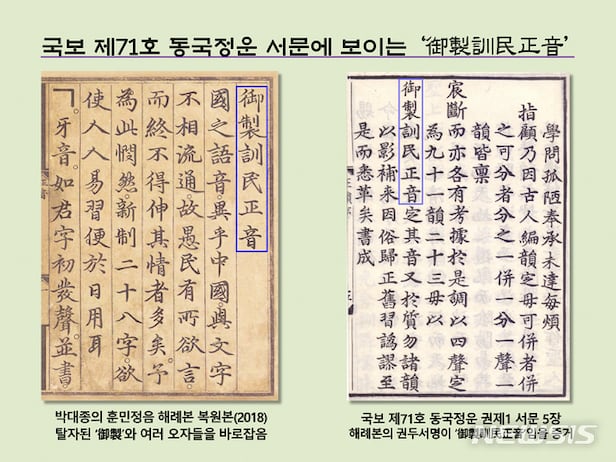 국보 제71호 동국정운 서문에 보이는 ‘御製訓民正音’
御製訓民正音
國之語音。異乎中國。與文字
不相流通。故愚民有所欲言
而終不得伸其情者多矣。予
為此憫然。新制二十八字。欲
使人人易習便於日用耳
ㄱ。牙音。如君字初發聲。並書。
學問孤陋奉承未達每煩
指顧乃因古人編韻定母可併者併
之可分者分之一併一分一聲一
韻皆稟
宸斷而亦各有考據於是調以四聲定
為九十一韻二十三母以
御製訓民正音定其音又於質勿諸韻
以影補來因俗歸正舊習譌謬至
是而悉革矣書成
박대종의 훈민정음 해례본 복원본(2018)
탈자된 ‘御製’와 여러 오자들을 바로잡음
국보 제71호 동국정운 권제1 서문 5장
해례본의 권두서명이 ‘御製訓民正音’임을 증거
NEWSIS